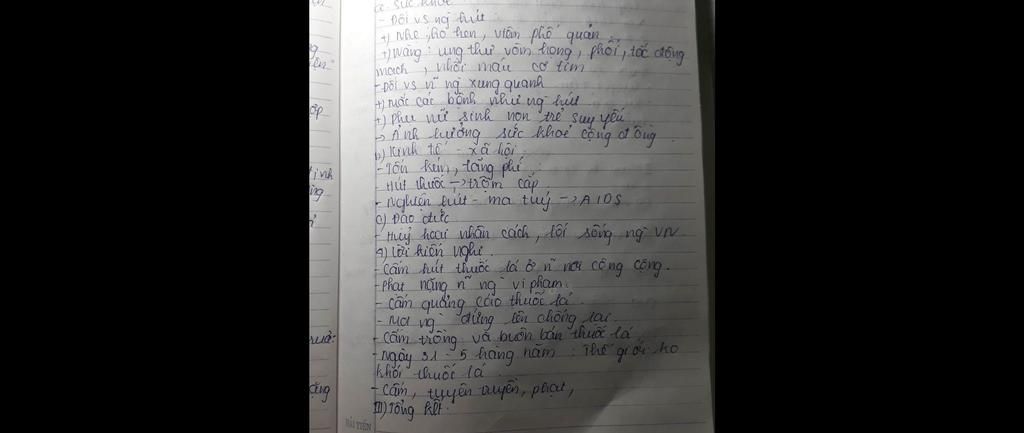 a. sức khoẻ
- Đối vs ng hút
+) Nhẹ: ho hen, viêm phế quản
+) Nặng: ung thư vòm họng, phổi, tắc động
mạch, nhồi máu cơ tim
- Đối vs ~ ng xung quanh
+) Mắc các bệnh như ng hút
+) Phụ nữ sinh non trẻ suy yếu
-> Ảnh hưởng sức khoẻ cộng đồng
b) Kinh tế - xã hội
- Tốn kém, lãng phí
- Hút thuốc -> trộm cắp
- Nghiện hút - ma tuý -> AIDS
c) Đạo đức
- Huỷ hoại nhân cách, lối sống ng VN
4) Lời kiến nghị
- Cấm hút thuốc lá ở ~ nơi công cộng.
- Phạt nặng ~ ng vi phạm.
- Cấm quảng cáo thuốc lá
- Mọi ng đứng lên chống lại
- Cấm trồng và buôn bán thuốc lá
- Ngày 31 - 5 hàng năm: Thế giới ko
khói thuốc lá
- Cấm, tuyên truyền, phạt,
III) Tổng kết.
HẢI TIẾN